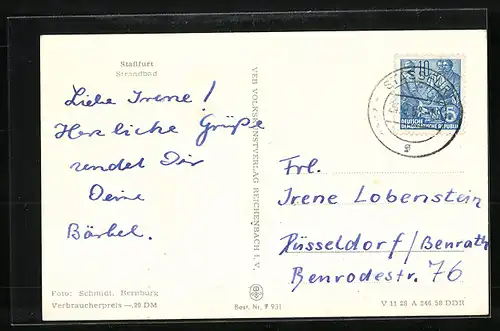 Staßfurt
Strandbad
Liebe Irene!
Herzliche Grüße
sendet Dir
Deine
Bärbel.
Foto: Schmidt, Bernburg
Verbraucherpreis —,20 DM
VEB VOLKSKUNSTVERLAG REICHENBACH I. V.
Best. Nr. F 931
DEUTSCHE
DEMOKRATISCHE REPUBLIK
5
Frl.
Irene Lobenstein
Düsseldorf/Benrath
Benrodestr. 76
V 11 28 A 246 58 DDR